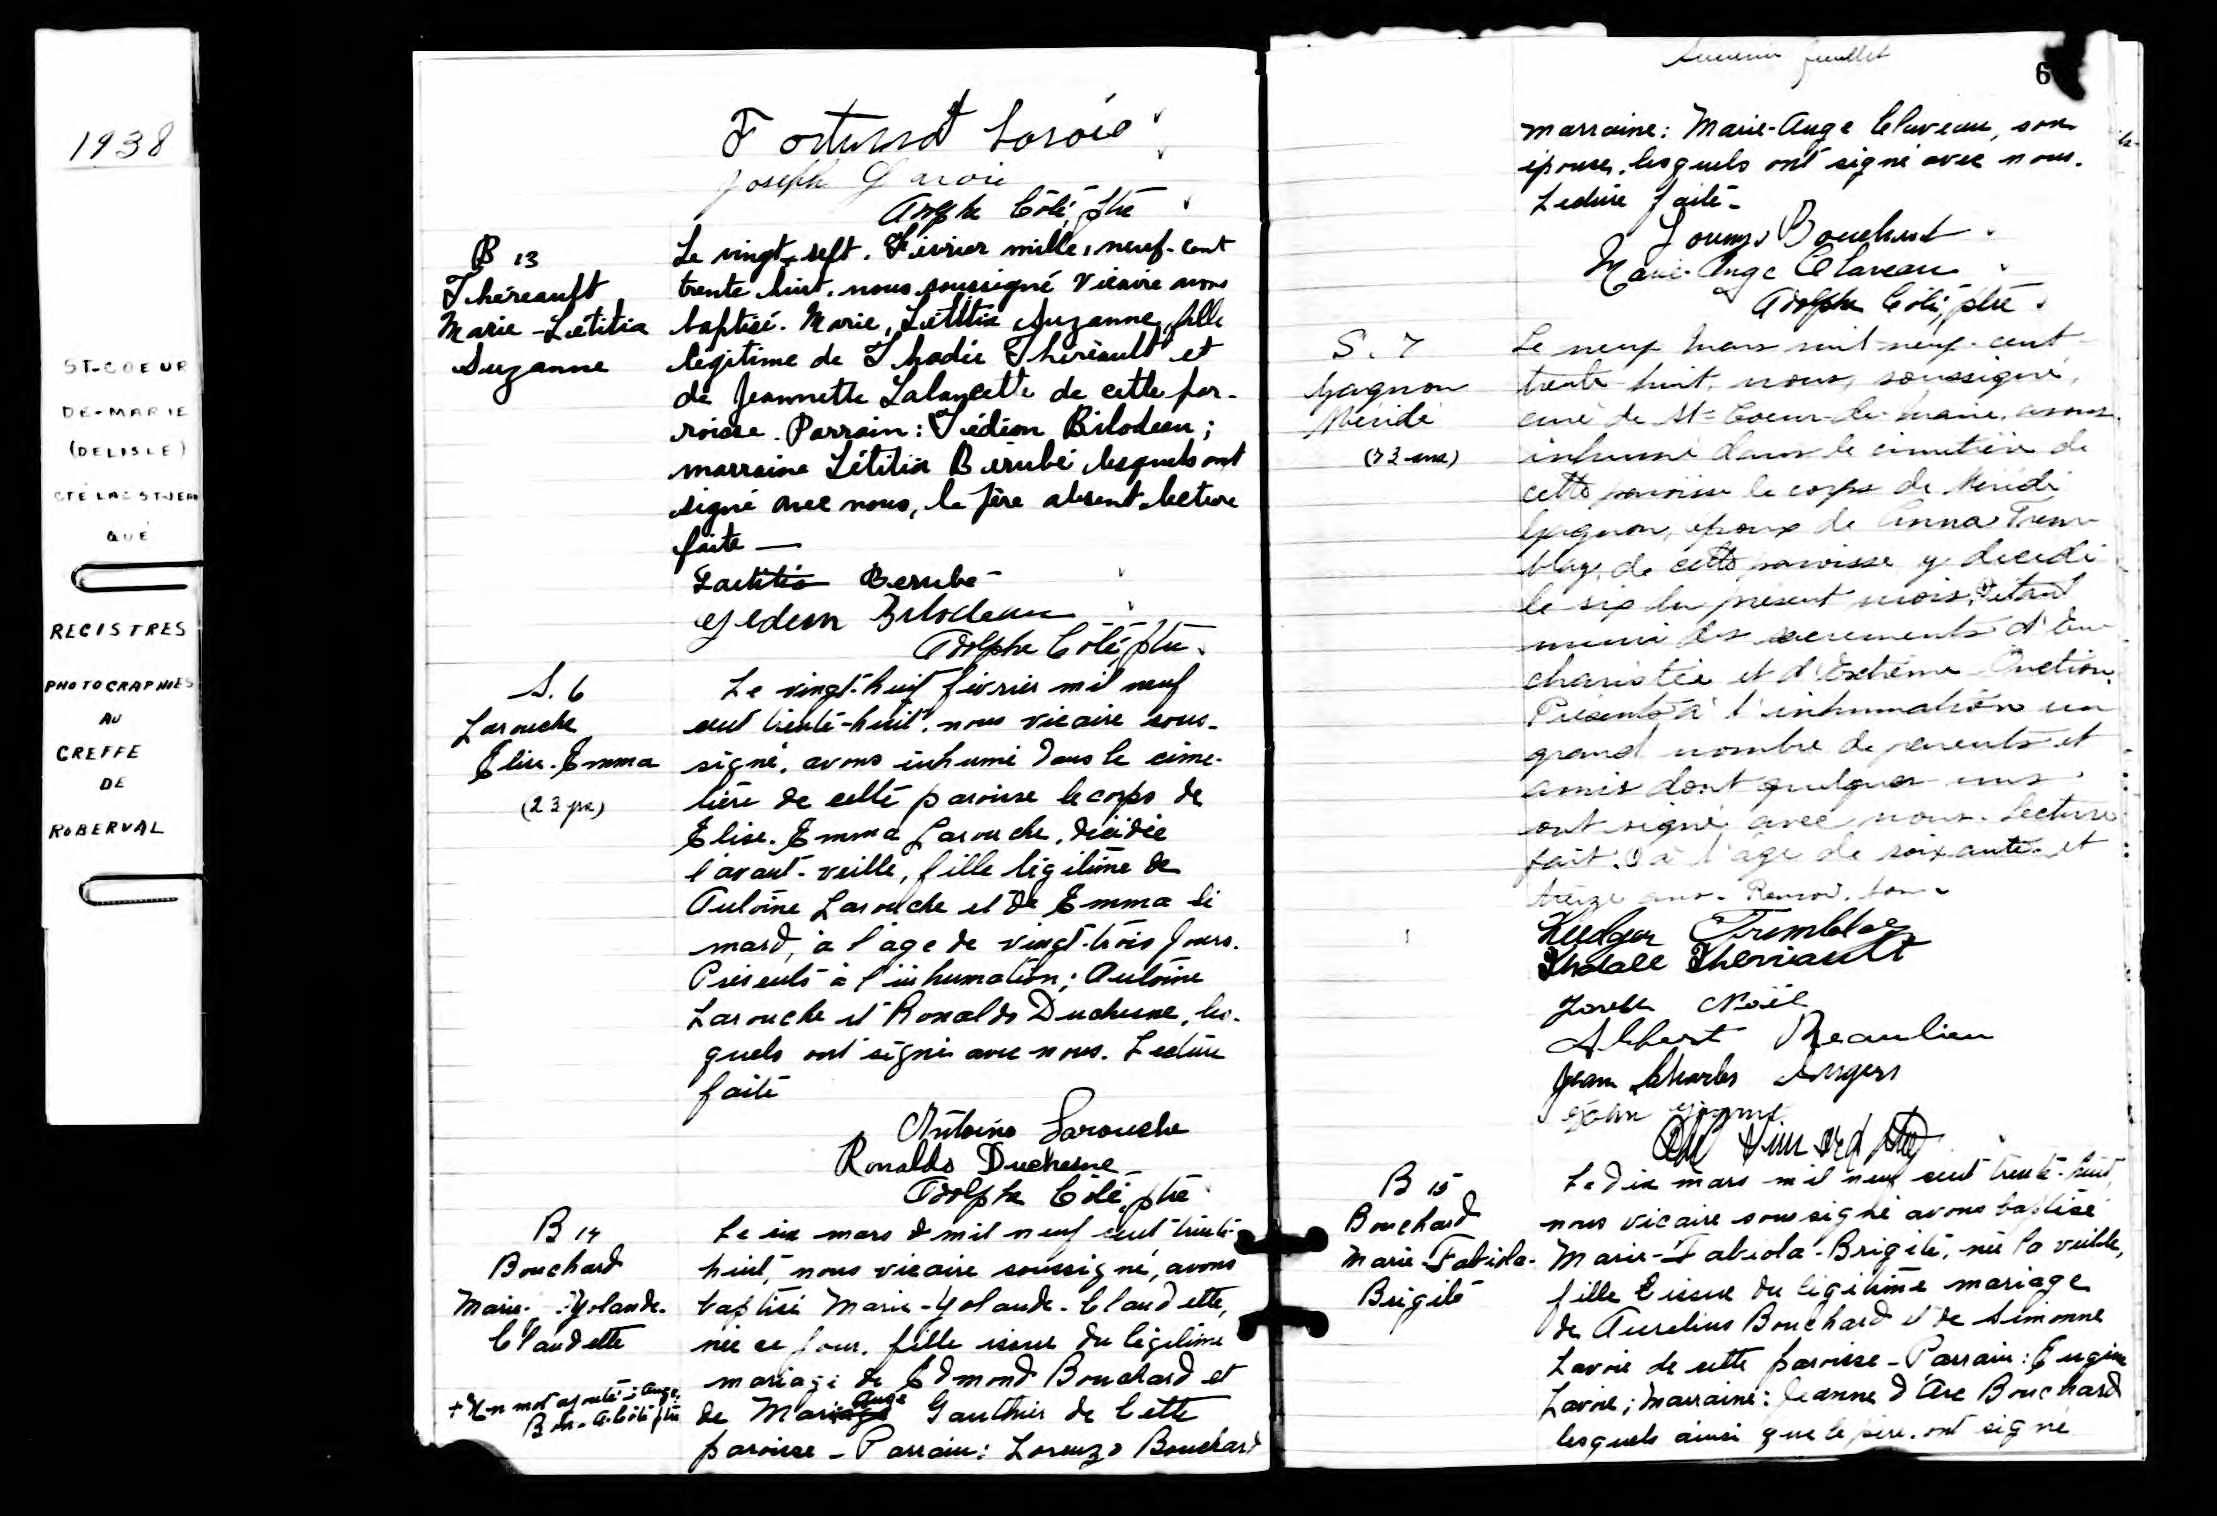 1938
ST-COEUR
DE-MARIE
(DELISLE)
CTÉ LAC ST-JEAN
QUÉ
REGISTRES
PHOTOGRAPHIES
AU
GREFFE
DE
ROBERVAL
Fortunat Savoie
Joseph Savoie
Adolphe Côté, ptre
B 13
Théreault
Marie-Lætitia
Suzanne
Le vingt-sept. Février mille, neuf-cent
trente huit. nous soussigné Vicaire avons
baptisé. Marie, Lætitia Suzanne, fille
légitime de Thadée Thériault et
de Jeannette Lalancette de cette par-
roisse. Parrain: Gédéon Bilodeau;
marraine Létitia Bérubé lesquels ont
signé avec nous, le père absent. lecture
faite —
Laetitia Berubé
Gedeon Bilodeau
Adolphe Côté, ptre.
S. 6
Larouche
Elise-Emma
(23 jrs)
Le vingt-huit février mil neuf
cent trente-huit, nous vicaire sous-
signé, avons inhumé dans le cime-
tière de cette paroisse le corps de
Elise-Emma Larouche, décédée
l'avant-veille, fille légitime de
Antoine Larouche et de Emma Si
mard, à l'âge de vingt-trois jours.
Présents à l'inhumation; Antoine
Larouche et Ronaldo Duchesne, les-
quels ont signé avec nous. Lecture
faite
Antoine Larouche
Ronaldo Duchesne
Adolphe Côté, ptre
B 14
Bouchard
Marie-Yolande-
Claudette
+ Un mot ajouté: Ange.
Bon. A. Côté ptre
Le six mars mil neuf cent trente-
huit, nous vicaire soussigné, avons
baptisé Marie-Yolande-Claudette,
née ce jour, fille issue du légitime
mariage de Edmond Bouchard et
de Marie Ange Gauthier de Cette
paroisse - Parrain: Lorenzo Bouchard
feuillet
6
marraine: Marie-Ange Claveau, son
épouse, lesquels ont signé avec nous.
Lecture faite -
Lorenzo Bouchard
Marie-Ange Claveau
Adolphe Côté, ptre
S. 7
Gagnon
Méridé
(73 ans)
Le neuf Mars mil neuf-cent
trente-huit, nous, soussigné,
curé de St-Coeur-de-Marie, avons
inhumé dans le cimetière de
cette paroisse le corps de Méridé
Gagnon, époux de Anna Trem-
blay, de cette paroisse y décédé
le six du présent mois, étant
muni des sacrements d'Eu-
charistie et d'Extrême-Onction.
Présents à l'inhumation un
grand nombre de parents et
amis dont quelques-uns
ont signé avec nous. Lecture
fait. à l'âge de soixante et
treize ans - Renvoi bon -
Tremblay
Theriault
Joseph Noël
Albert Beaulieu
Jean Charles Angers
B 15
Bouchard
Marie-Fabiola-
Brigite
Le dix mars mil neuf cent trente-huit,
nous vicaire soussigné avons baptisé
Marie-Fabiola-Brigite, née la veille,
fille issue du légitime mariage
de Aurelius Bouchard et de Simonne
Lavoie de cette paroisse - Parrain: Eugène
Lavoie; marraine: Jeanne d'Arc Bouchard
lesquels ainsi que le père ont signé